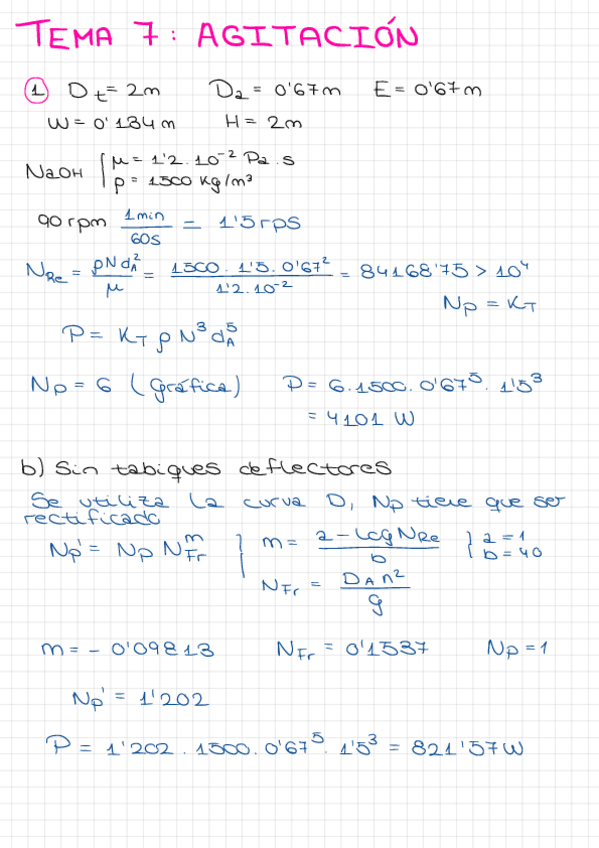 TEMA 7: AGITACIÓN
1 Dt = 2m Da = 0'67m E = 0'67m
W = 0'134m H = 2m
NaOH { μ = 1'2·10⁻² Pa·s
ρ = 1500 Kg/m³
90 rpm 1min/60s = 1'5 rps
N_Re = ρNd_A²/μ = 1500·1'5·0'67²/1'2·10⁻² = 84168'75 > 10⁴
Np = K_T
P = K_T ρ N³ d_A⁵
Np = 6 (gráfica) P = 6·1500·0'67⁵·1'5³
= 4101 W
b) Sin tabiques deflectores
Se utiliza la curva D, Np tiene que ser
rectificado
Np' = Np N_Fr^m } m = a - log N_Re / b } a = 1
b = 40
N_Fr = D_A n²/g
m = - 0'09813 N_Fr = 0'1537 Np = 1
Np' = 1'202
P = 1'202·1500·0'67⁵·1'5³ = 821'57W